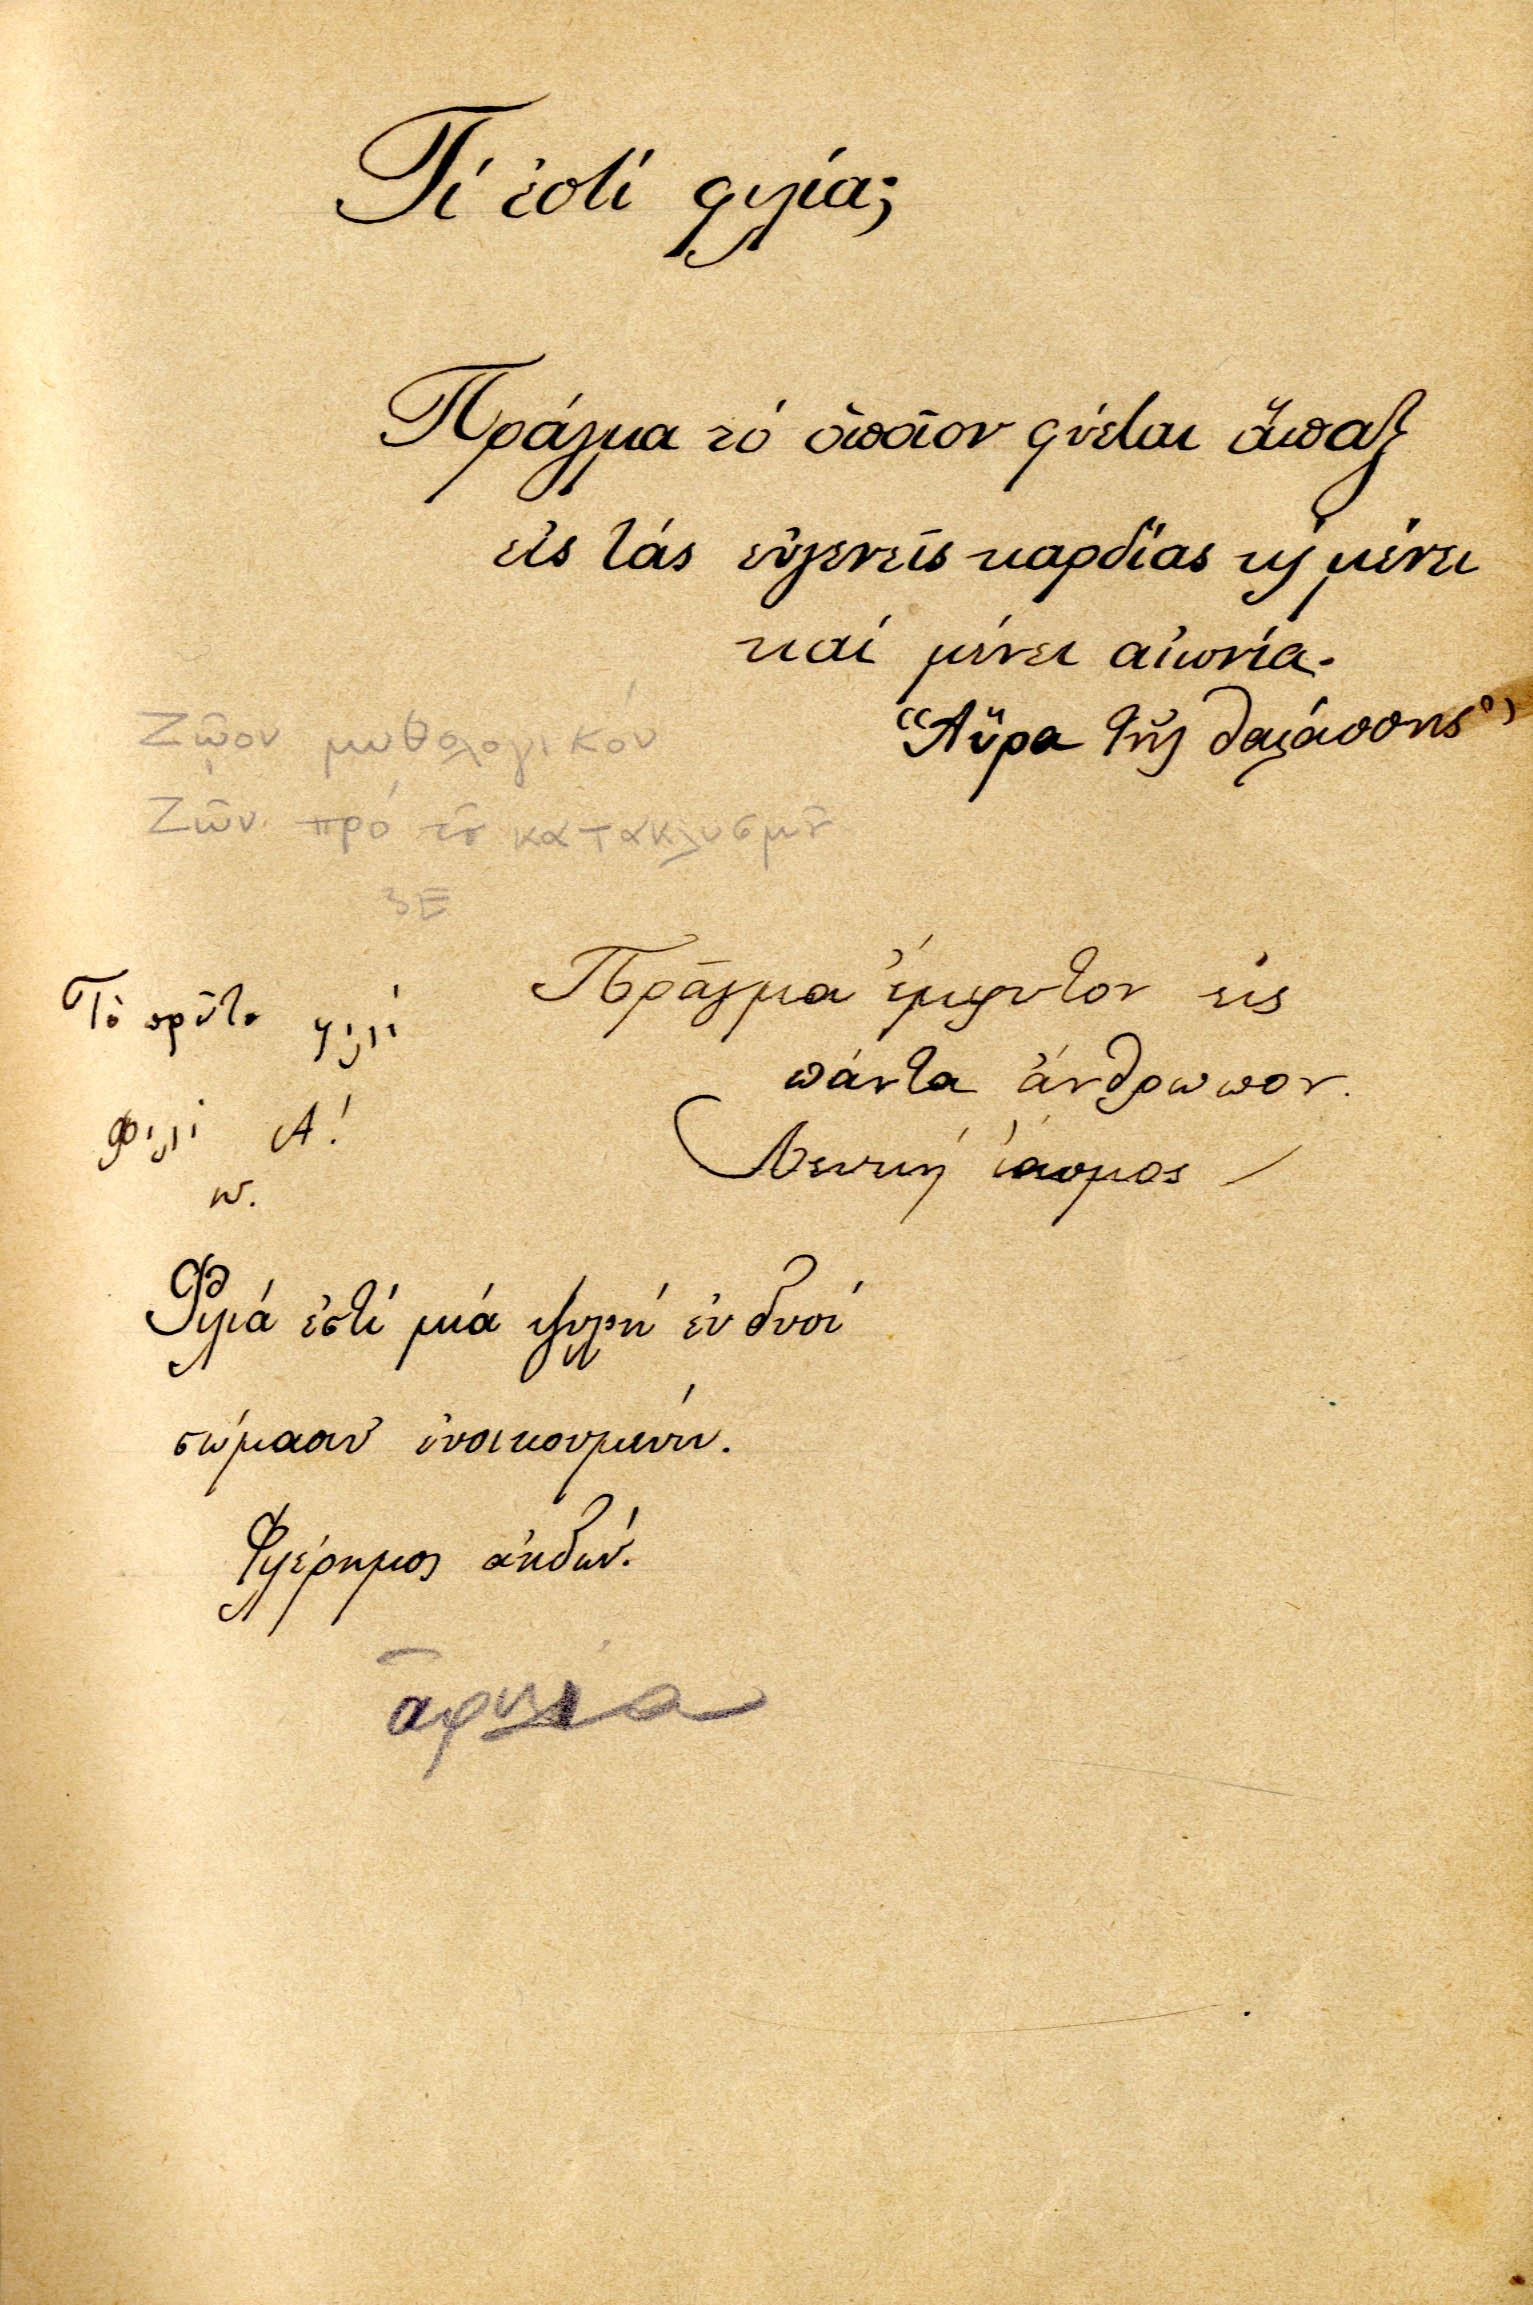 Τί ἐστί φιλία;
Πρᾶγμα τό ὁποῖον φύεται ἅπαξ
εἰς τάς εὐγενεῖς καρδίας κ μένει
καί μένει αἰωνία.
"Αὔρα τῆς θαλάσσης"
Ζῷον μυθολογικόν
Ζῶν πρό τοῦ κατακλυσμοῦ
Πρᾶγμα ἔμφυτον εἰς
πάντα ἄνθρωπον.
Λευκή ἴασμος
Τὸ πρῶτο φιλί
Φιλί Α!
κ.
Φιλιά ἐστί μιά ψυχή ἐν δυσί
σώμασιν ἐνοικουμένη.
Φιλέρημος ἀηδών.
ἀφιλία